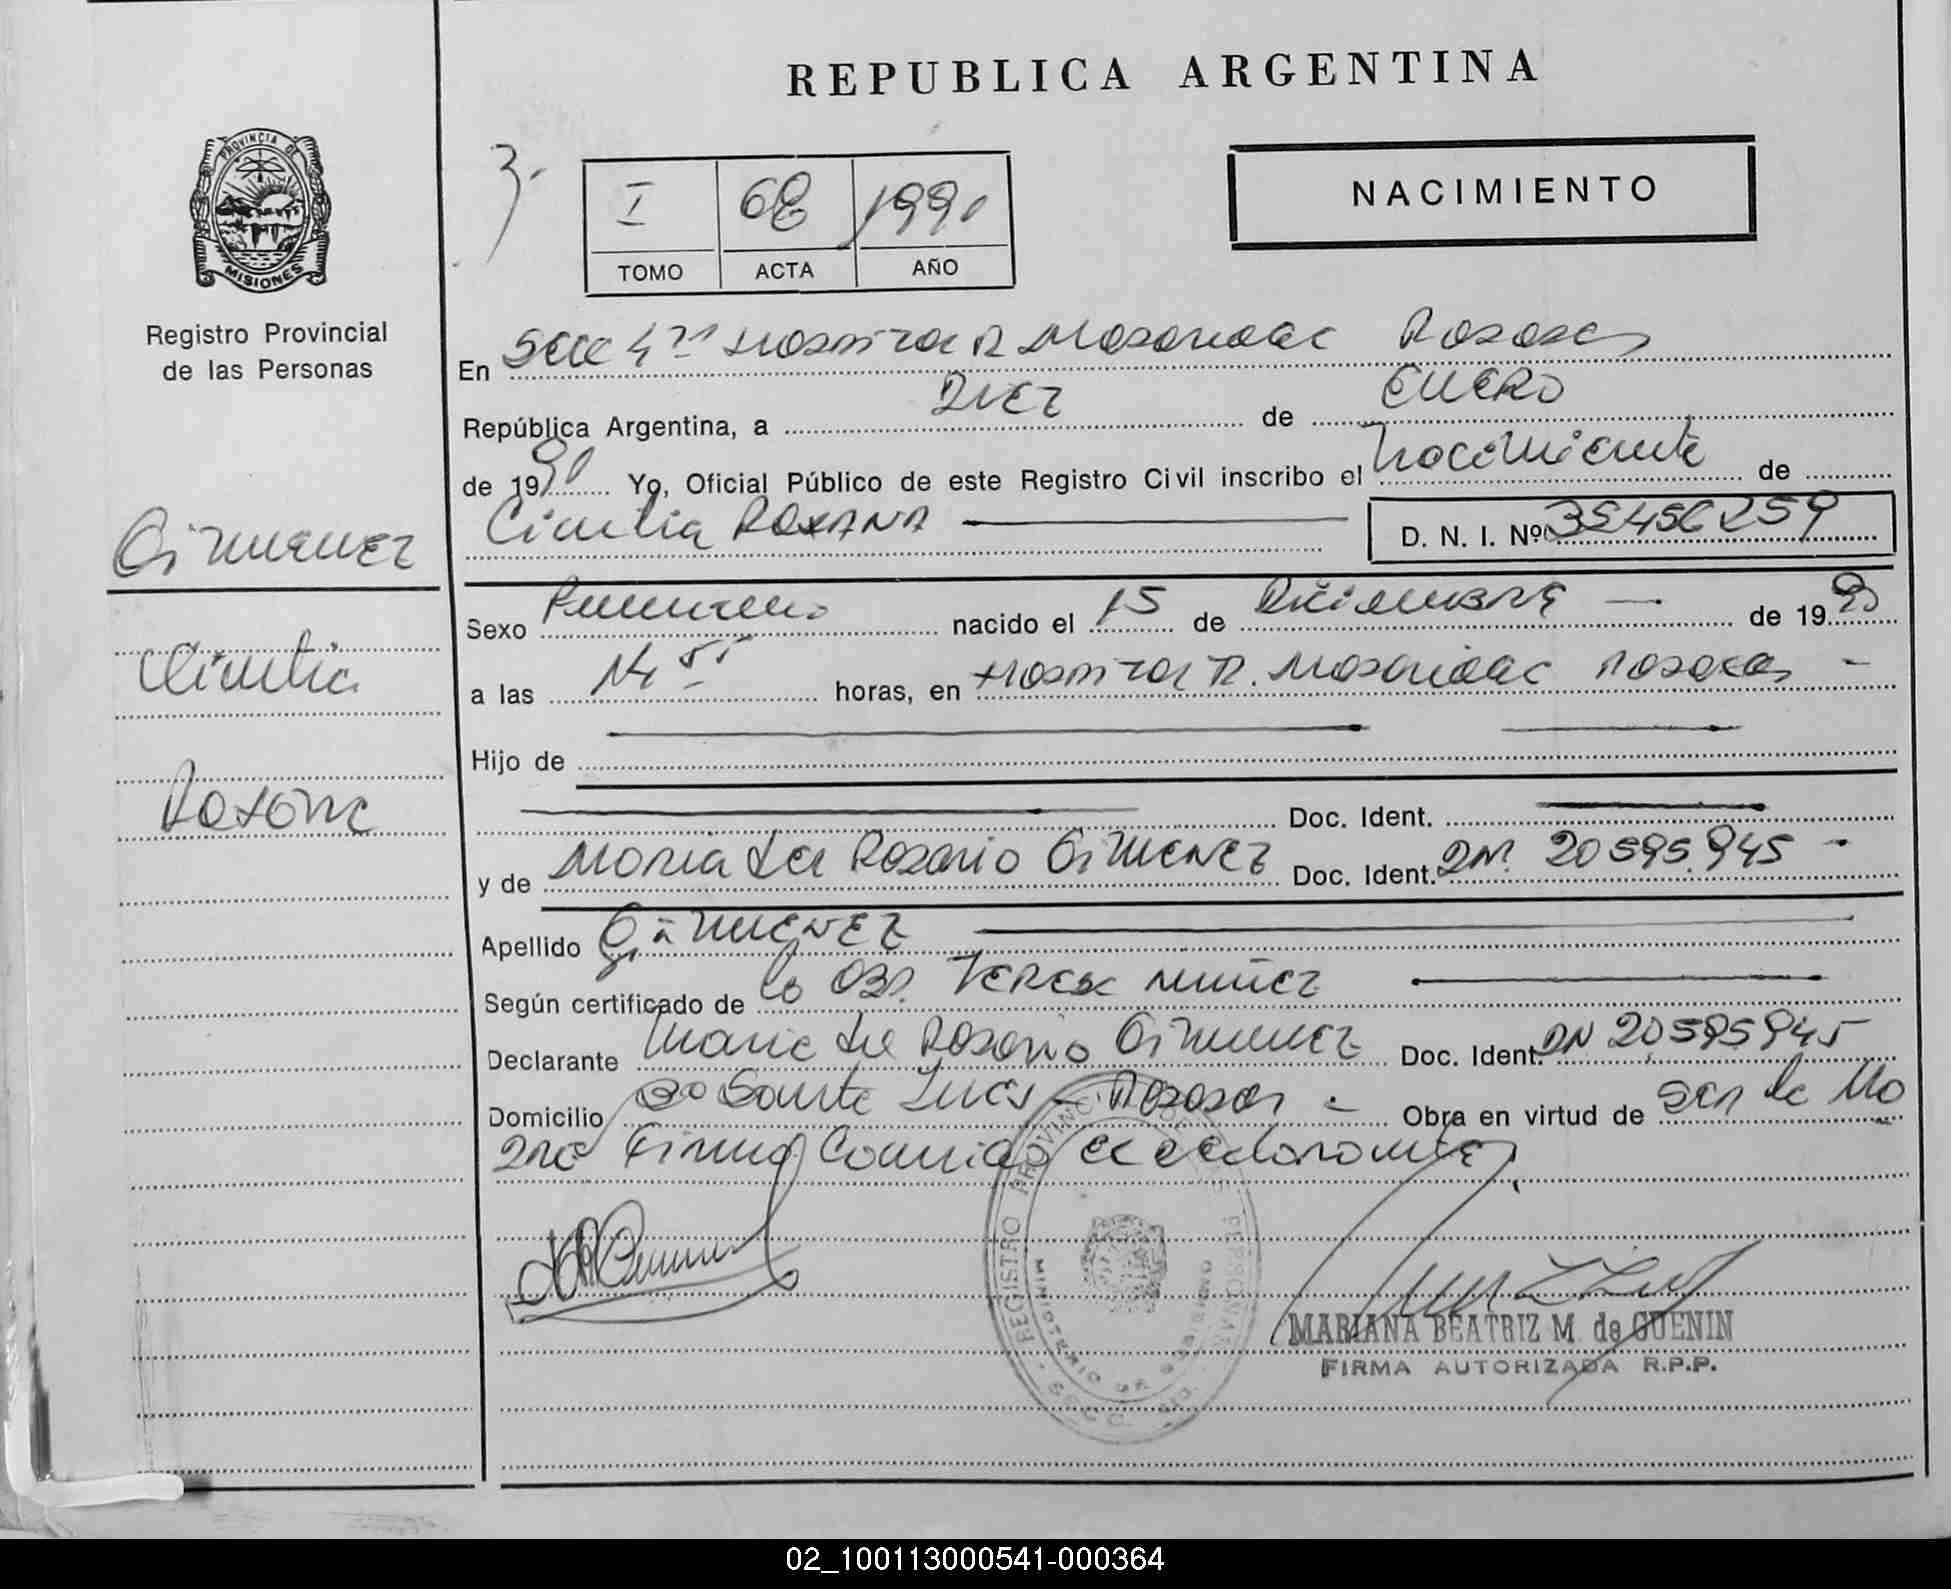 REPUBLICA ARGENTINA
PROVINCIA DE
MISIONES
Registro Provincial
de las Personas
3-
I 68 1991
TOMO ACTA AÑO
NACIMIENTO
En Secc 4ta Hospital R Madariaga Posadas
República Argentina, a Diez de ENERO
de 1991 Yo, Oficial Público de este Registro Civil inscribo el nacimiento de
Cintia ROXANA D. N. I. Nº 35456259
Gimenez
Cintia
Roxana
Sexo Femenino nacido el 15 de Diciembre de 1990
a las 14 horas, en Hospital R. Madariaga Posadas -
Hijo de
Doc. Ident.
y de Maria del Rosario GiMENEZ Doc. Ident. DNI 20595.945 -
Apellido GiMENEZ
Según certificado de la Obs. TERESA NUÑEZ
Declarante Maria del Rosario Gimenez Doc. Ident. DN 20595945
Domicilio Bo Santa Lucia - Posadas - Obra en virtud de ser la Ma
dre Firma Conmigo la declarante
REGISTRO PROVINCIAL DE LAS PERSONAS
MINISTERIO DE GOBIERNO
MARIANA BEATRIZ M. de GUENIN
FIRMA AUTORIZADA R.P.P.
02_100113000541-000364